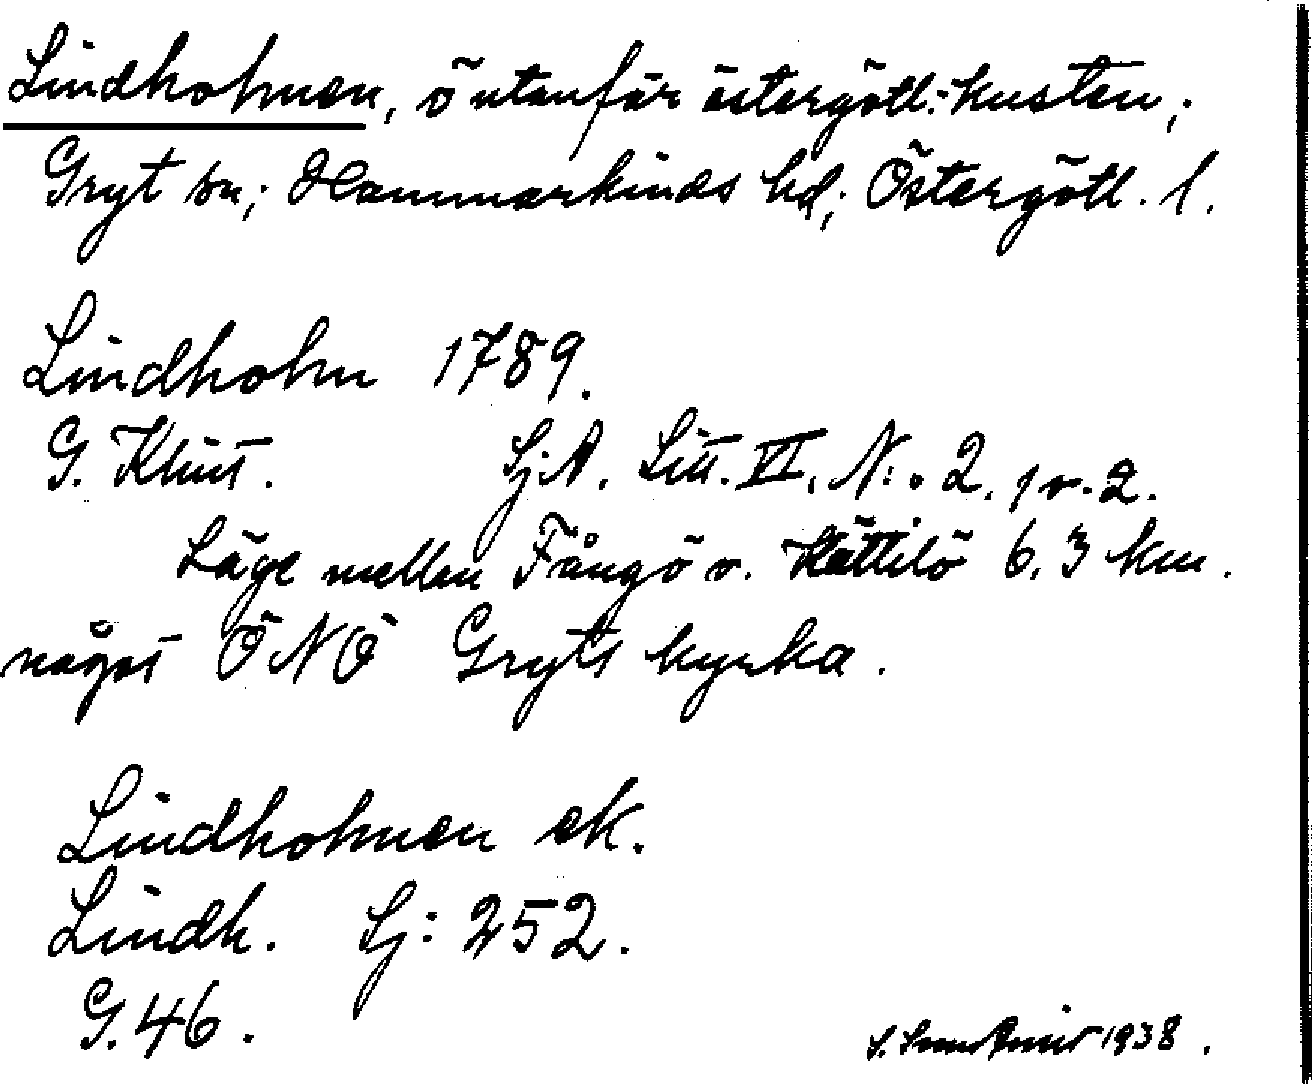 Lindholmen, ö utanför östergötl: kusten,
Gryt sn; Hammarkinds hd; Östergötl. l.
Lindholm 1789.
G. Klint. Sj:A. Litt. VI. N:o 2. 1 o. 2.
Läge mellan Fångö o. Kättilö 6,3 km.
något ÖNÖ Gryts kyrka.
Lindholmen ek.
Lindh. Sj: 252.
G. 46.
1938.